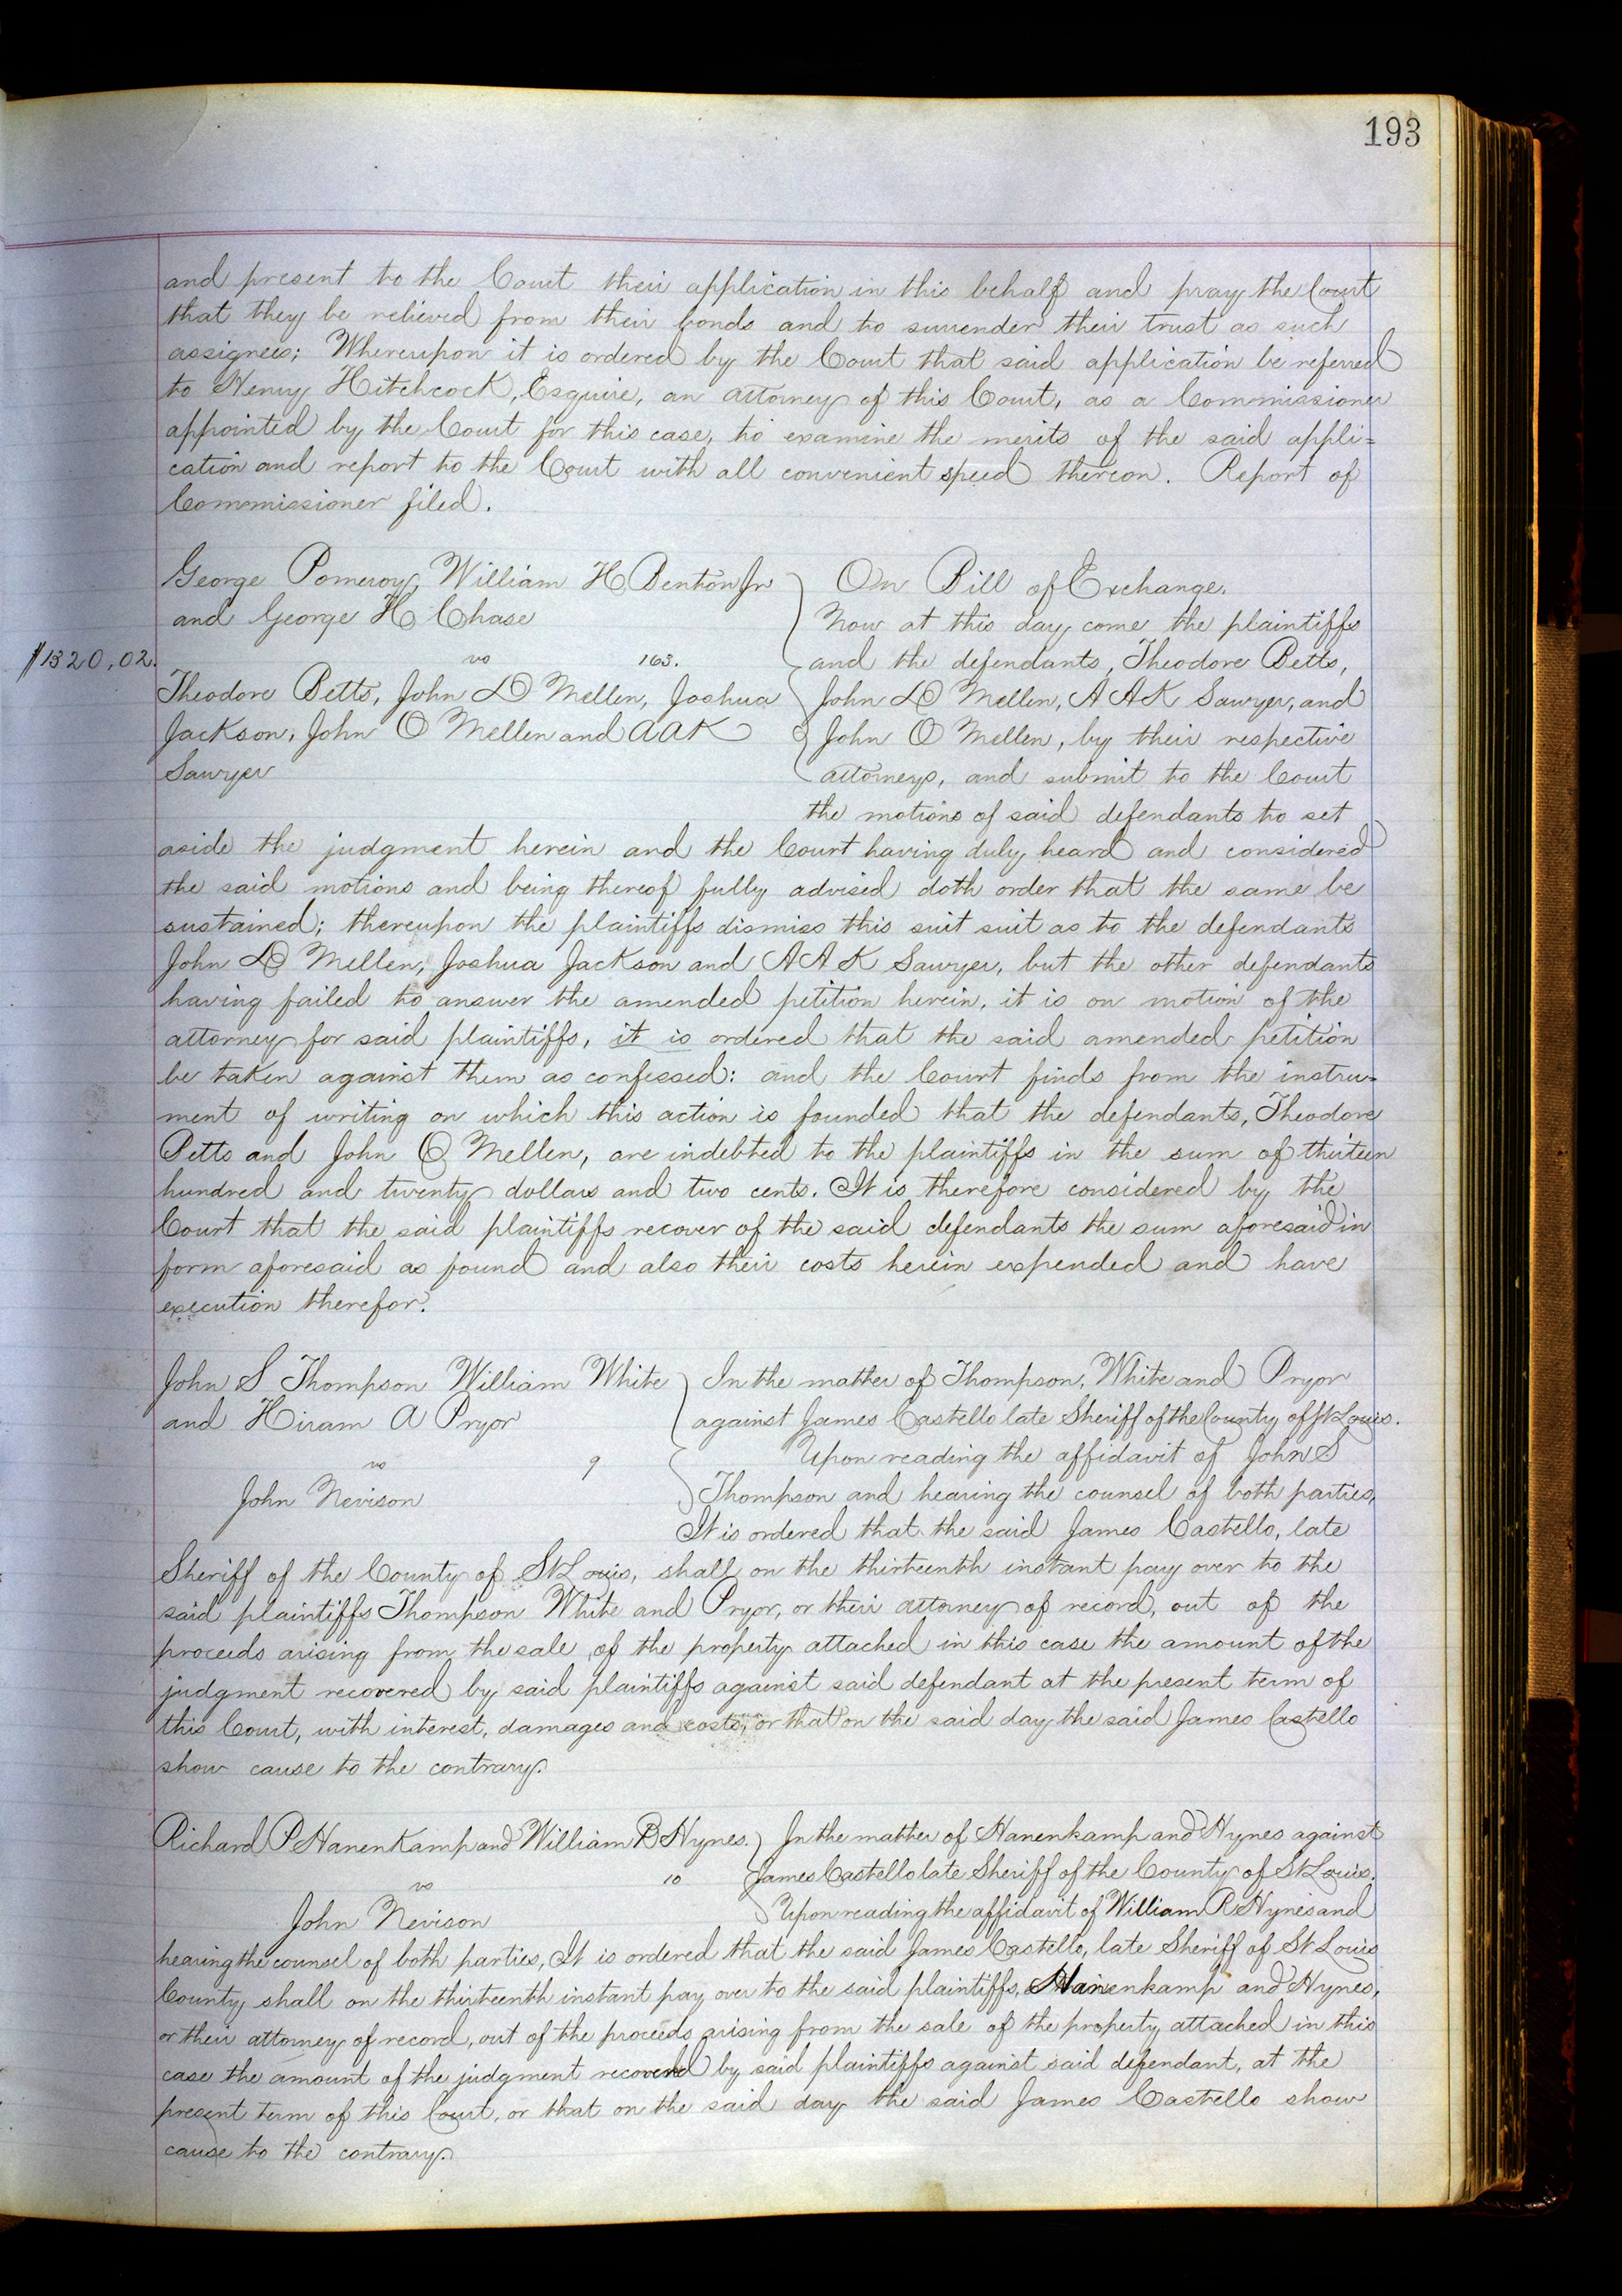 193
and present to the Court their application in this behalf and pray the Court
that they be relieved from their bonds and to surrender their trust as such
assignees; Whereupon it is ordered by the Court that said application be referred
to Henry Hitchcock, Esquire, an attorney of this Court, as a Commissioner
appointed by the Court for this case, to examine the merits of the said appli=
cation and report to the Court with all convenient speed thereon. Report of
Commissioner filed.
George Pomeroy, William H Benton Jr
and George H Chase
$1320,02.
vs 163.
Theodore Betts, John D Mellen, Joshua
Jackson, John O Mellen and A A K
Sawyer
On Bill of Exchange.
Now at this day come the plaintiffs
and the defendants, Theodore Betts,
John D Mellen, A A K Sawyer, and
John O Mellen, by their respective
attorneys, and submit to the Court
the motions of said defendants to set
aside the judgment herein and the Court having duly heard and considered
the said motions and being thereof fully advised doth order that the same be
sustained; thereupon the plaintiffs dismiss this suit suit as to the defendants
John D Mellen, Joshua Jackson and A A K Sawyer, but the other defendants
having failed to answer the amended petition herein, it is on motion of the
attorney for said plaintiffs, it is ordered that the said amended petition
be taken against them as confessed: and the Court finds from the instru-
ment of writing on which this action is founded that the defendants, Theodore
Betts and John O Mellen, are indebted to the plaintiffs in the sum of thirteen
hundred and twenty dollars and two cents. It is therefore considered by the
Court that the said plaintiffs recover of the said defendants the sum aforesaid in
form aforesaid as found and also their costs herein expended and have
execution therefor.
John S Thompson William White
and Hiram A Pryor
vs 9
John Nevison
In the matter of Thompson, White and Pryor
against James Castello late Sheriff of the County of St Louis.
Upon reading the affidavit of John S
Thompson and hearing the counsel of both parties,
It is ordered that the said James Castello, late
Sheriff of the County of St Louis, shall on the thirteenth instant pay over to the
said plaintiffs Thompson White and Pryor, or their attorney of record, out of the
proceeds arising from the sale of the property attached in this case the amount of the
judgment recovered by said plaintiffs against said defendant at the present term of
this Court, with interest, damages and costs, or that on the said day the said James Castello
show cause to the contrary.
Richard P Hanenkamp and William R Hynes.
10
vs
John Nevison
In the matter of Hanenkamp and Hynes against
James Castello late Sheriff of the County of St Louis.
Upon reading the affidavit of William R Hynes and
hearing the counsel of both parties, It is ordered that the said James Castello, late Sheriff of St Louis
County shall on the thirteenth instant pay over to the said plaintiffs, Hanenkamp and Hynes,
or their attorney of record, out of the proceeds arising from the sale of the property attached in this
case the amount of the judgment recovered by said plaintiffs against said defendant, at the
present term of this Court, or that on the said day the said James Castello show
cause to the contrary.